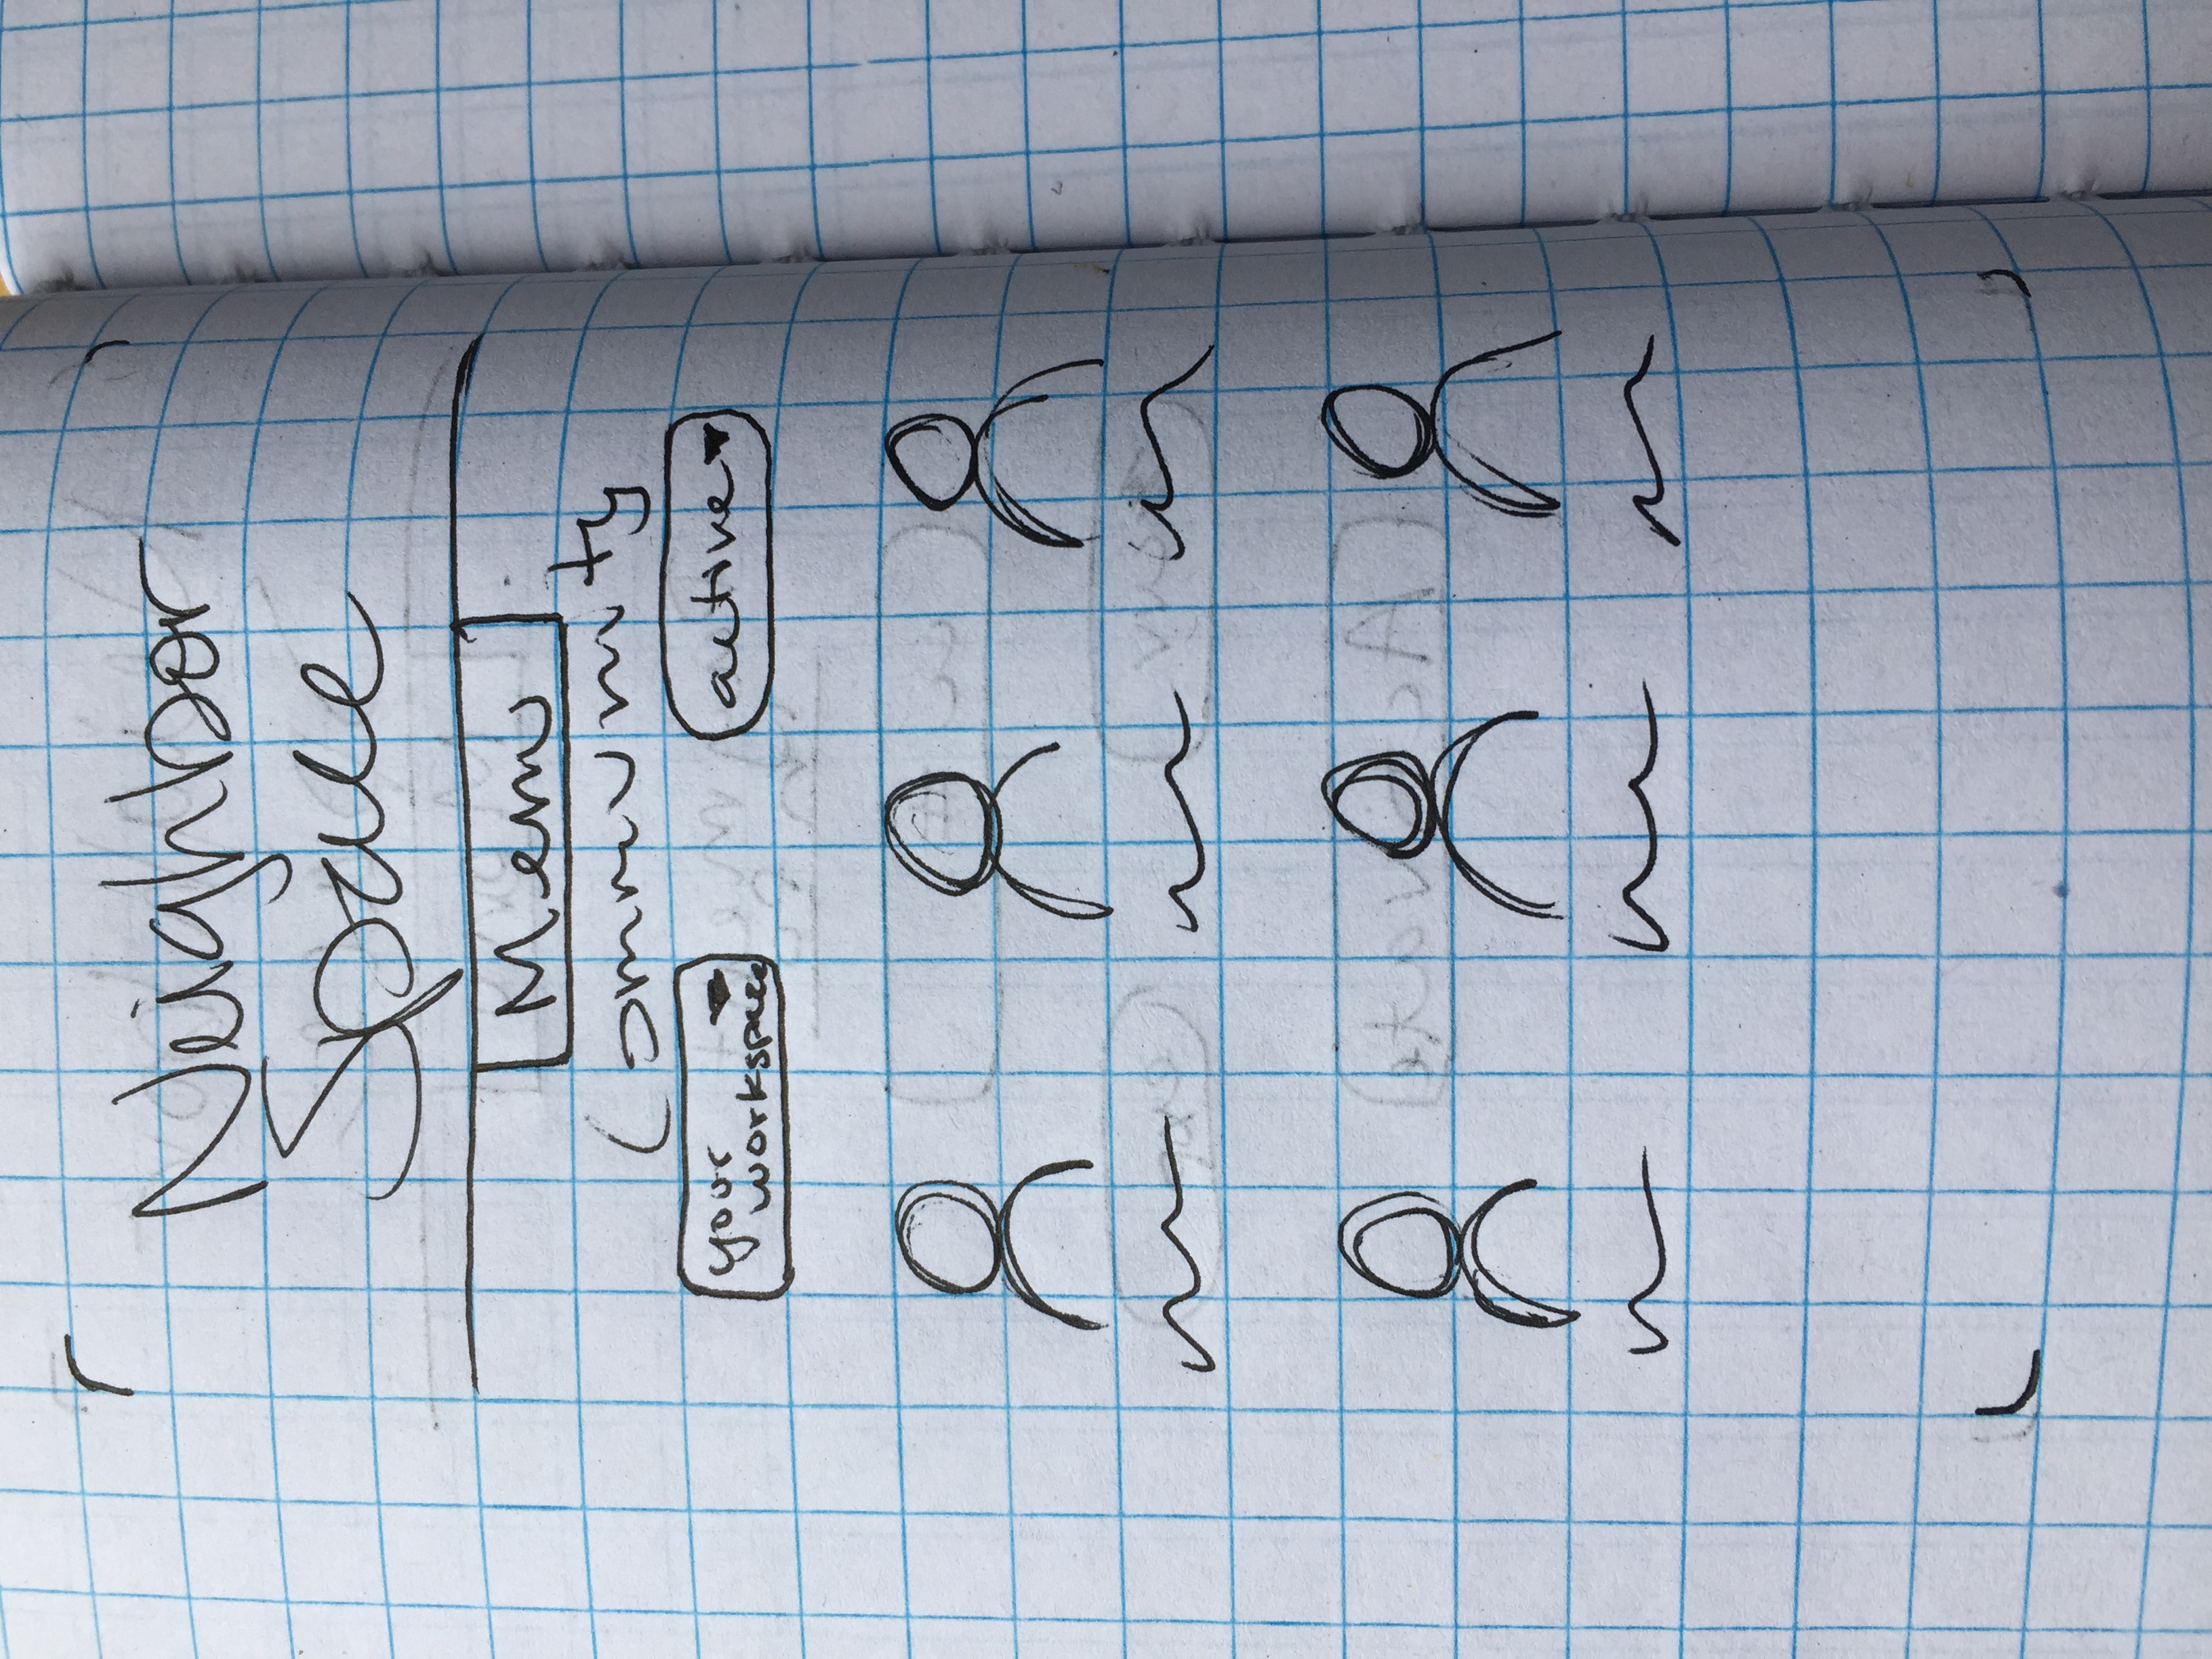 Neighbor
Space
Menu
Community
your
workspace
active